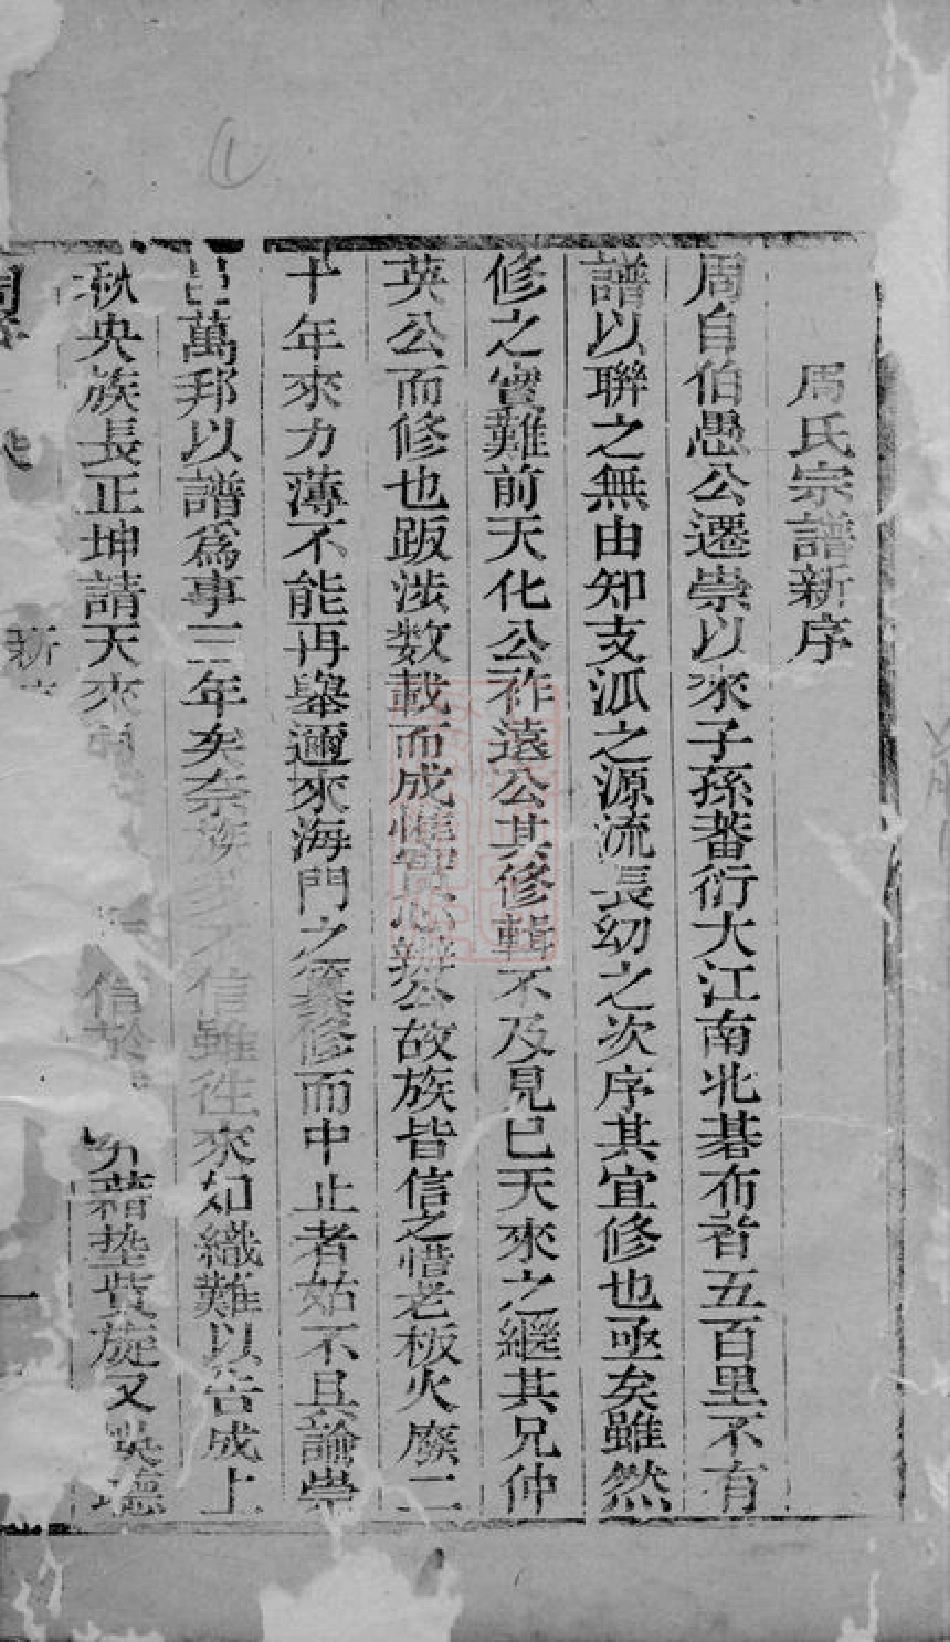 周氏宗譜新序
周自伯愚公遷崇以來子孫蕃衍大江南北碁布者五百里不有
譜以聯之無由知支派之源流長幼之次序其宜修也亟矣雖然
修之實難前天化公祚遠公其修輯不及見已天來之繼其兄仲
英公而修也跋涉数載而成惟寔惟辦公故族皆信之惜老板火廢二
十年來力薄不能再舉邇來海門之纂修而中止者姑不具論崇
邑萬邦以譜為事三年矣奈族不信雖徃來如織難以告成上
秋央族長正坤請天來 信於 藉墊貲旋又
新
一